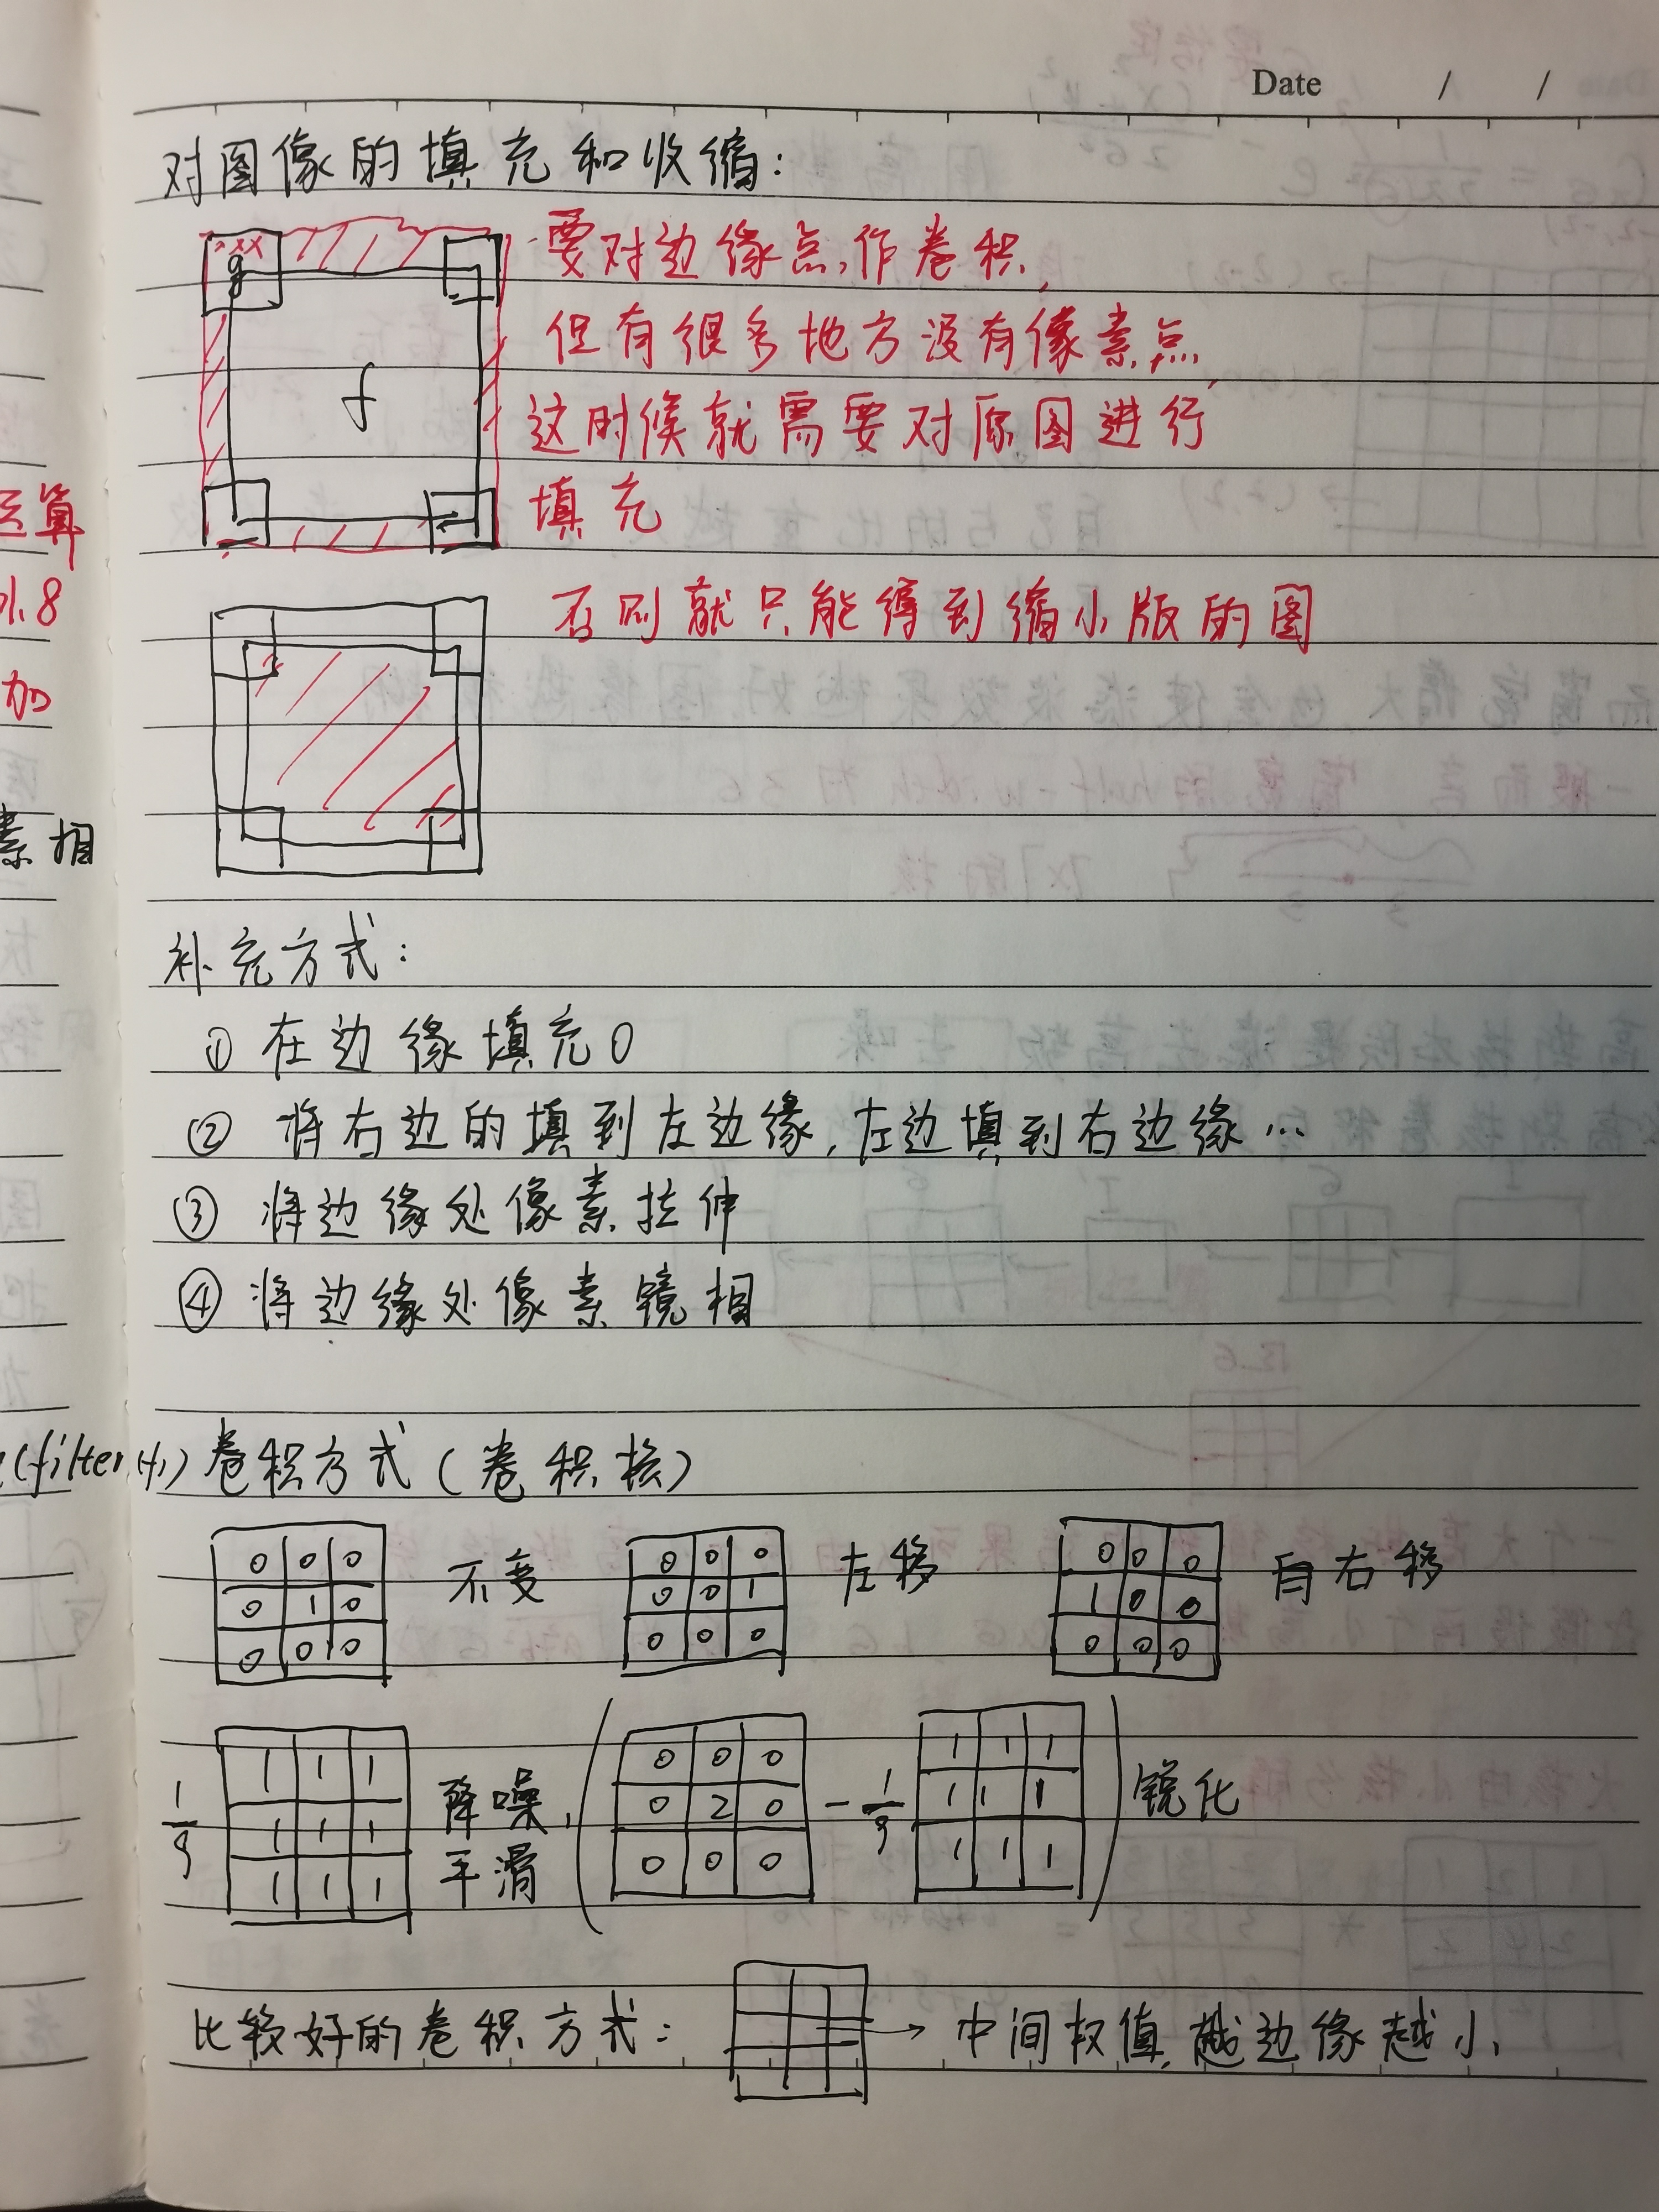 Date / /
对图像的填充和收缩:
要对边缘点,作卷积,
但有很多地方没有像素点,
这时候就需要对原图进行
填充
g
f
运算
小.8
加
素相
否则就只能得到缩小版的图
补充方式:
① 在边缘填充0
② 将右边的填到左边缘,左边填到右边缘...
③ 将边缘处像素拉伸
④ 将边缘处像素镜相
(filter中) 卷积方式(卷积核)
0 0 0
0 1 0
0 0 0
不变
0 0 0
0 0 1
0 0 0
左移
0 0 0
1 0 0
0 0 0
右移
1/9
1 1 1
1 1 1
1 1 1
降噪,
平滑
(
0 0 0
0 2 0
0 0 0
- 1/9
1 1 1
1 1 1
1 1 1
)
锐化
比较好的卷积方式: → 中间权值,越边缘越小